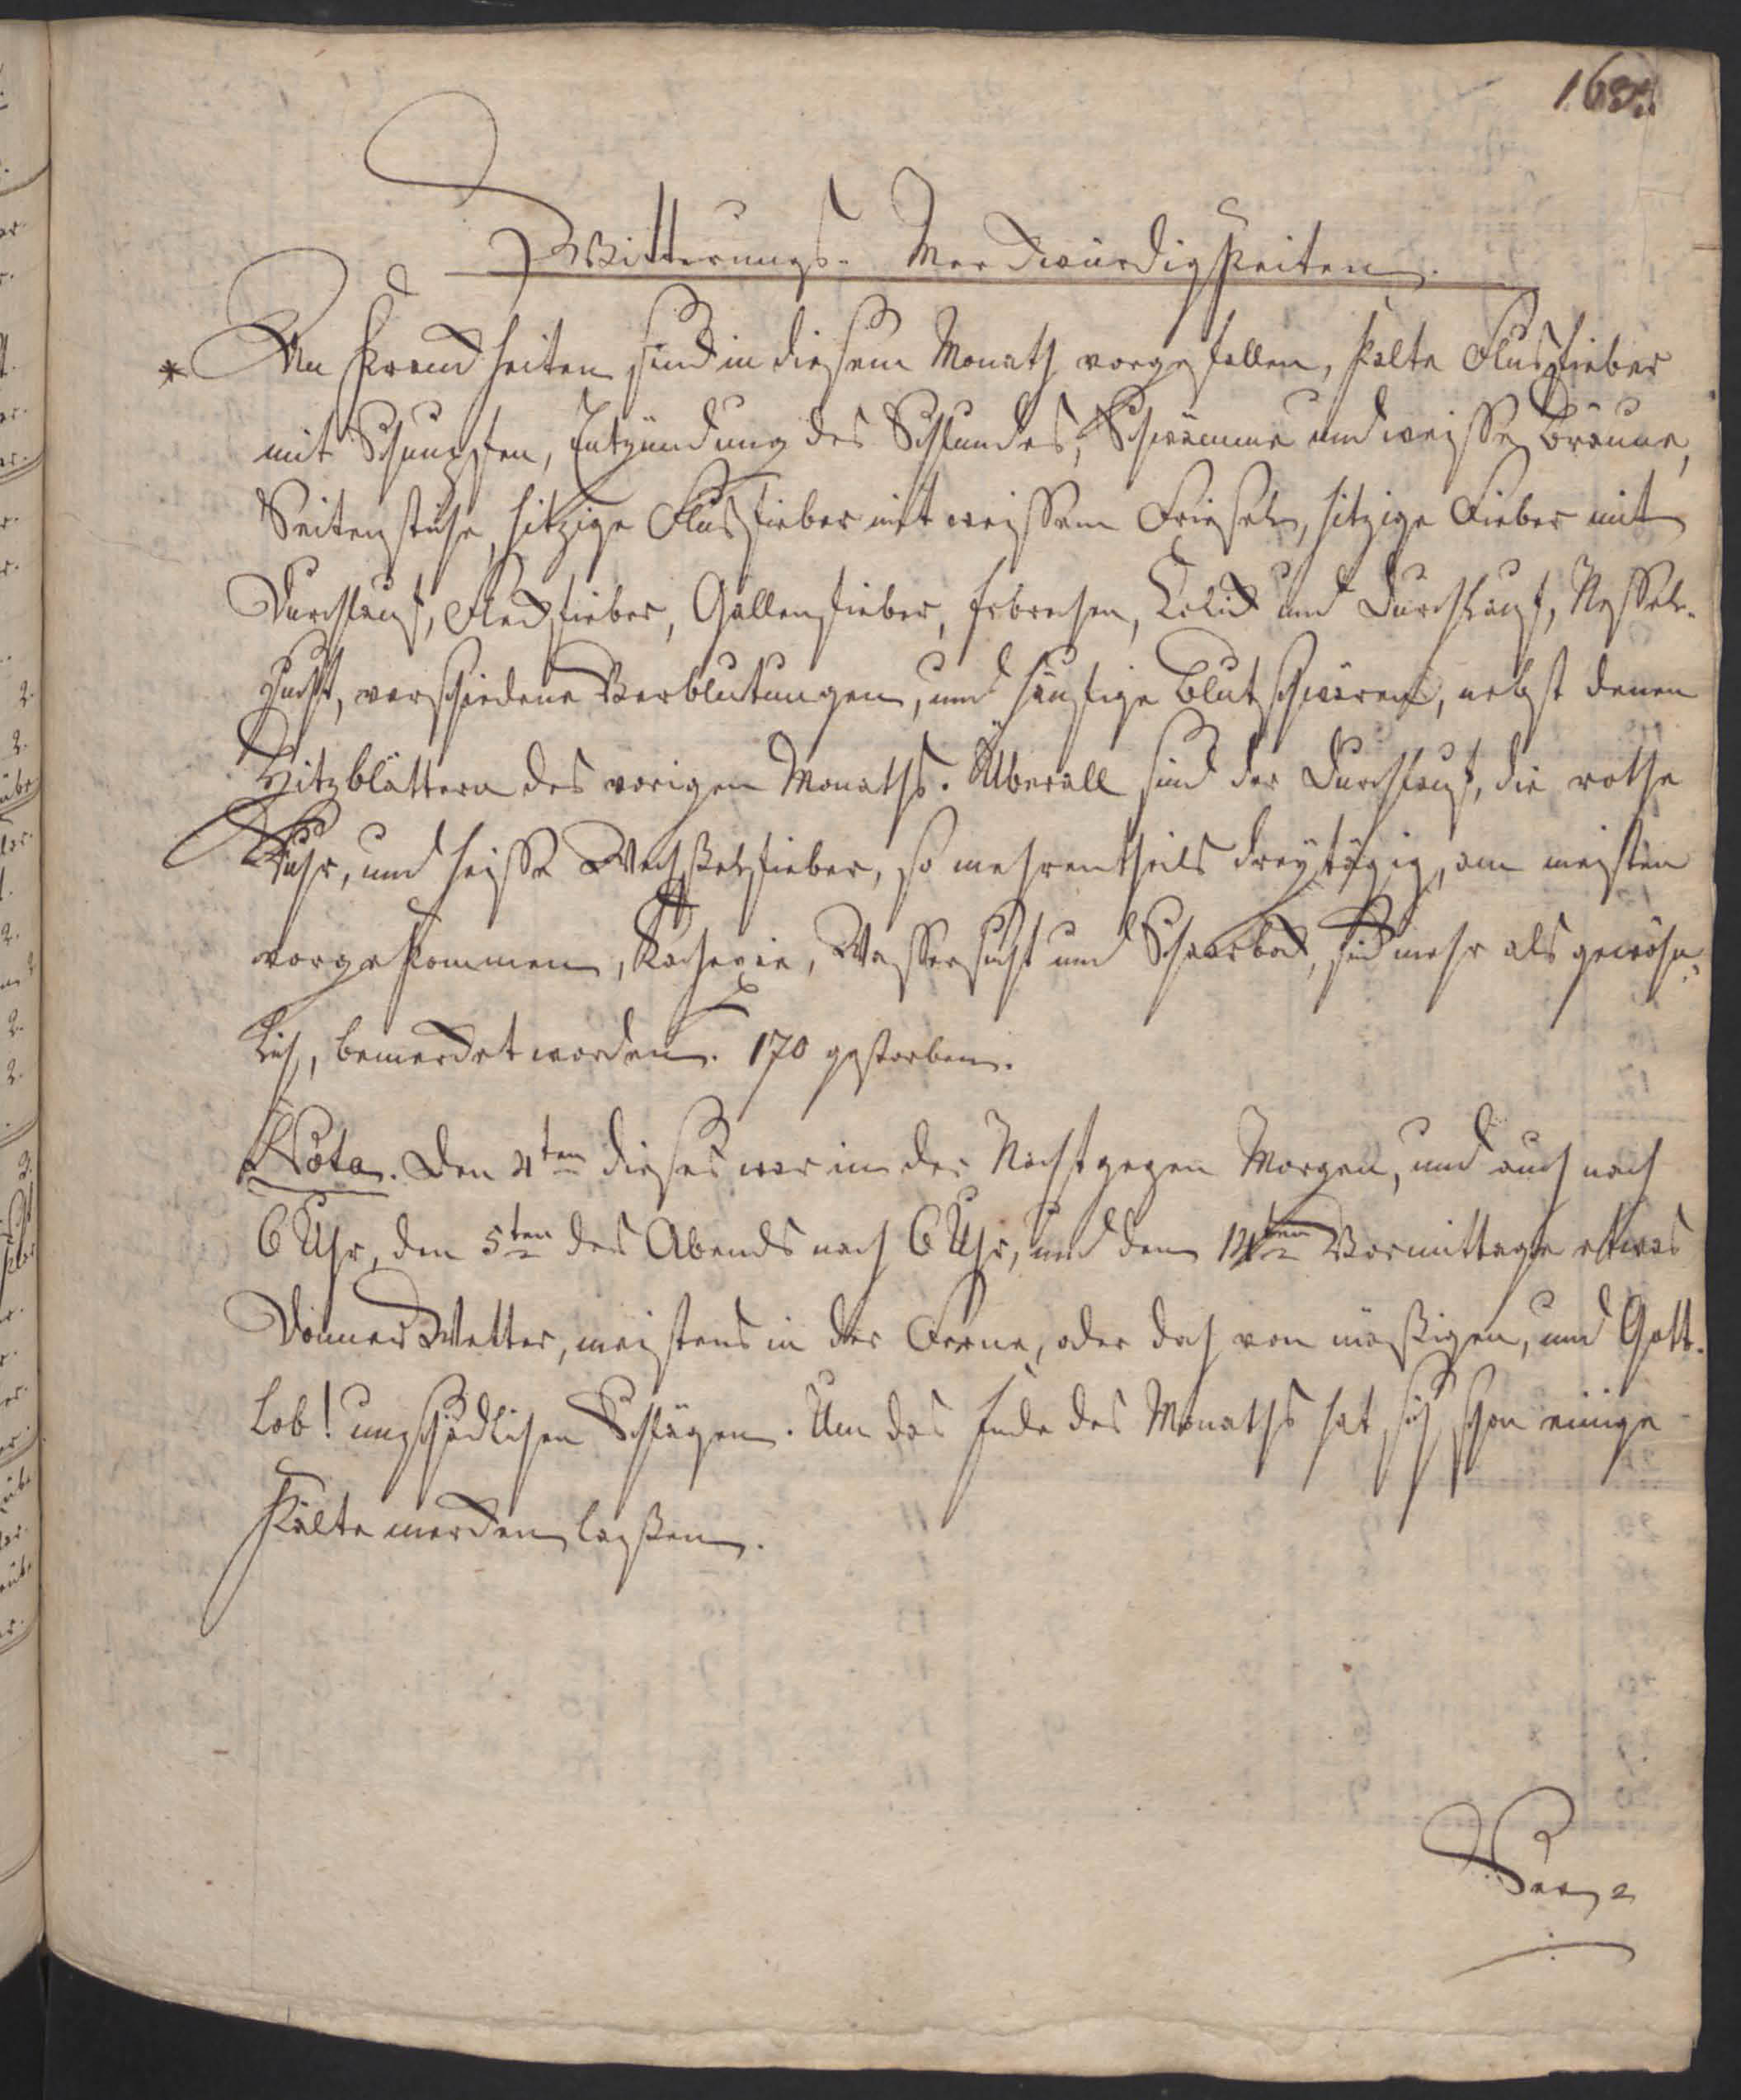 Witterungs- Merckwürdigkeiten.
* An Kranckheiten sind in diesem Monath vorgefallen, kalte Flussfieber
mit Schnupfen, Entzündung des Schlundes, Schwämme und weisse Bräune,
Seitenstiche, hitzige Flussfieber mit weissem Friesel, hitzige Fieber mit
Durchlauf, Fleckfieber, Gallenfieber, Erbrechen, Colick und Durchlauf, Nessel-
sucht, verschiedene Verblutungen, und häufige Blutschwären, nebst denen
Hitzblattern des vorigen Monaths. Überall sind der Durchlauf, die rothe
Ruhr, und heisse Wechselfieber, so mehrentheils dreytägig, am meisten
vorgekommen, Kachexie, Wassersucht und Schaarbock, sind mehr als gewöhn-
lich, bemercket worden. 170 gestorben.
Nota. Den 4ten dieses war in der Nacht gegen Morgen, und auch nach
6 Uhr, den 5ten des Abends nach 6 Uhr, und den 14ten Vormittage etwas
Donner Wetter, meistens in der Ferne, oder doch von mäßigen, und Gott-
lob! unschädlichen Schlägen. Um das Ende des Monaths hat sich schon einige
Kälte mercken laßen.